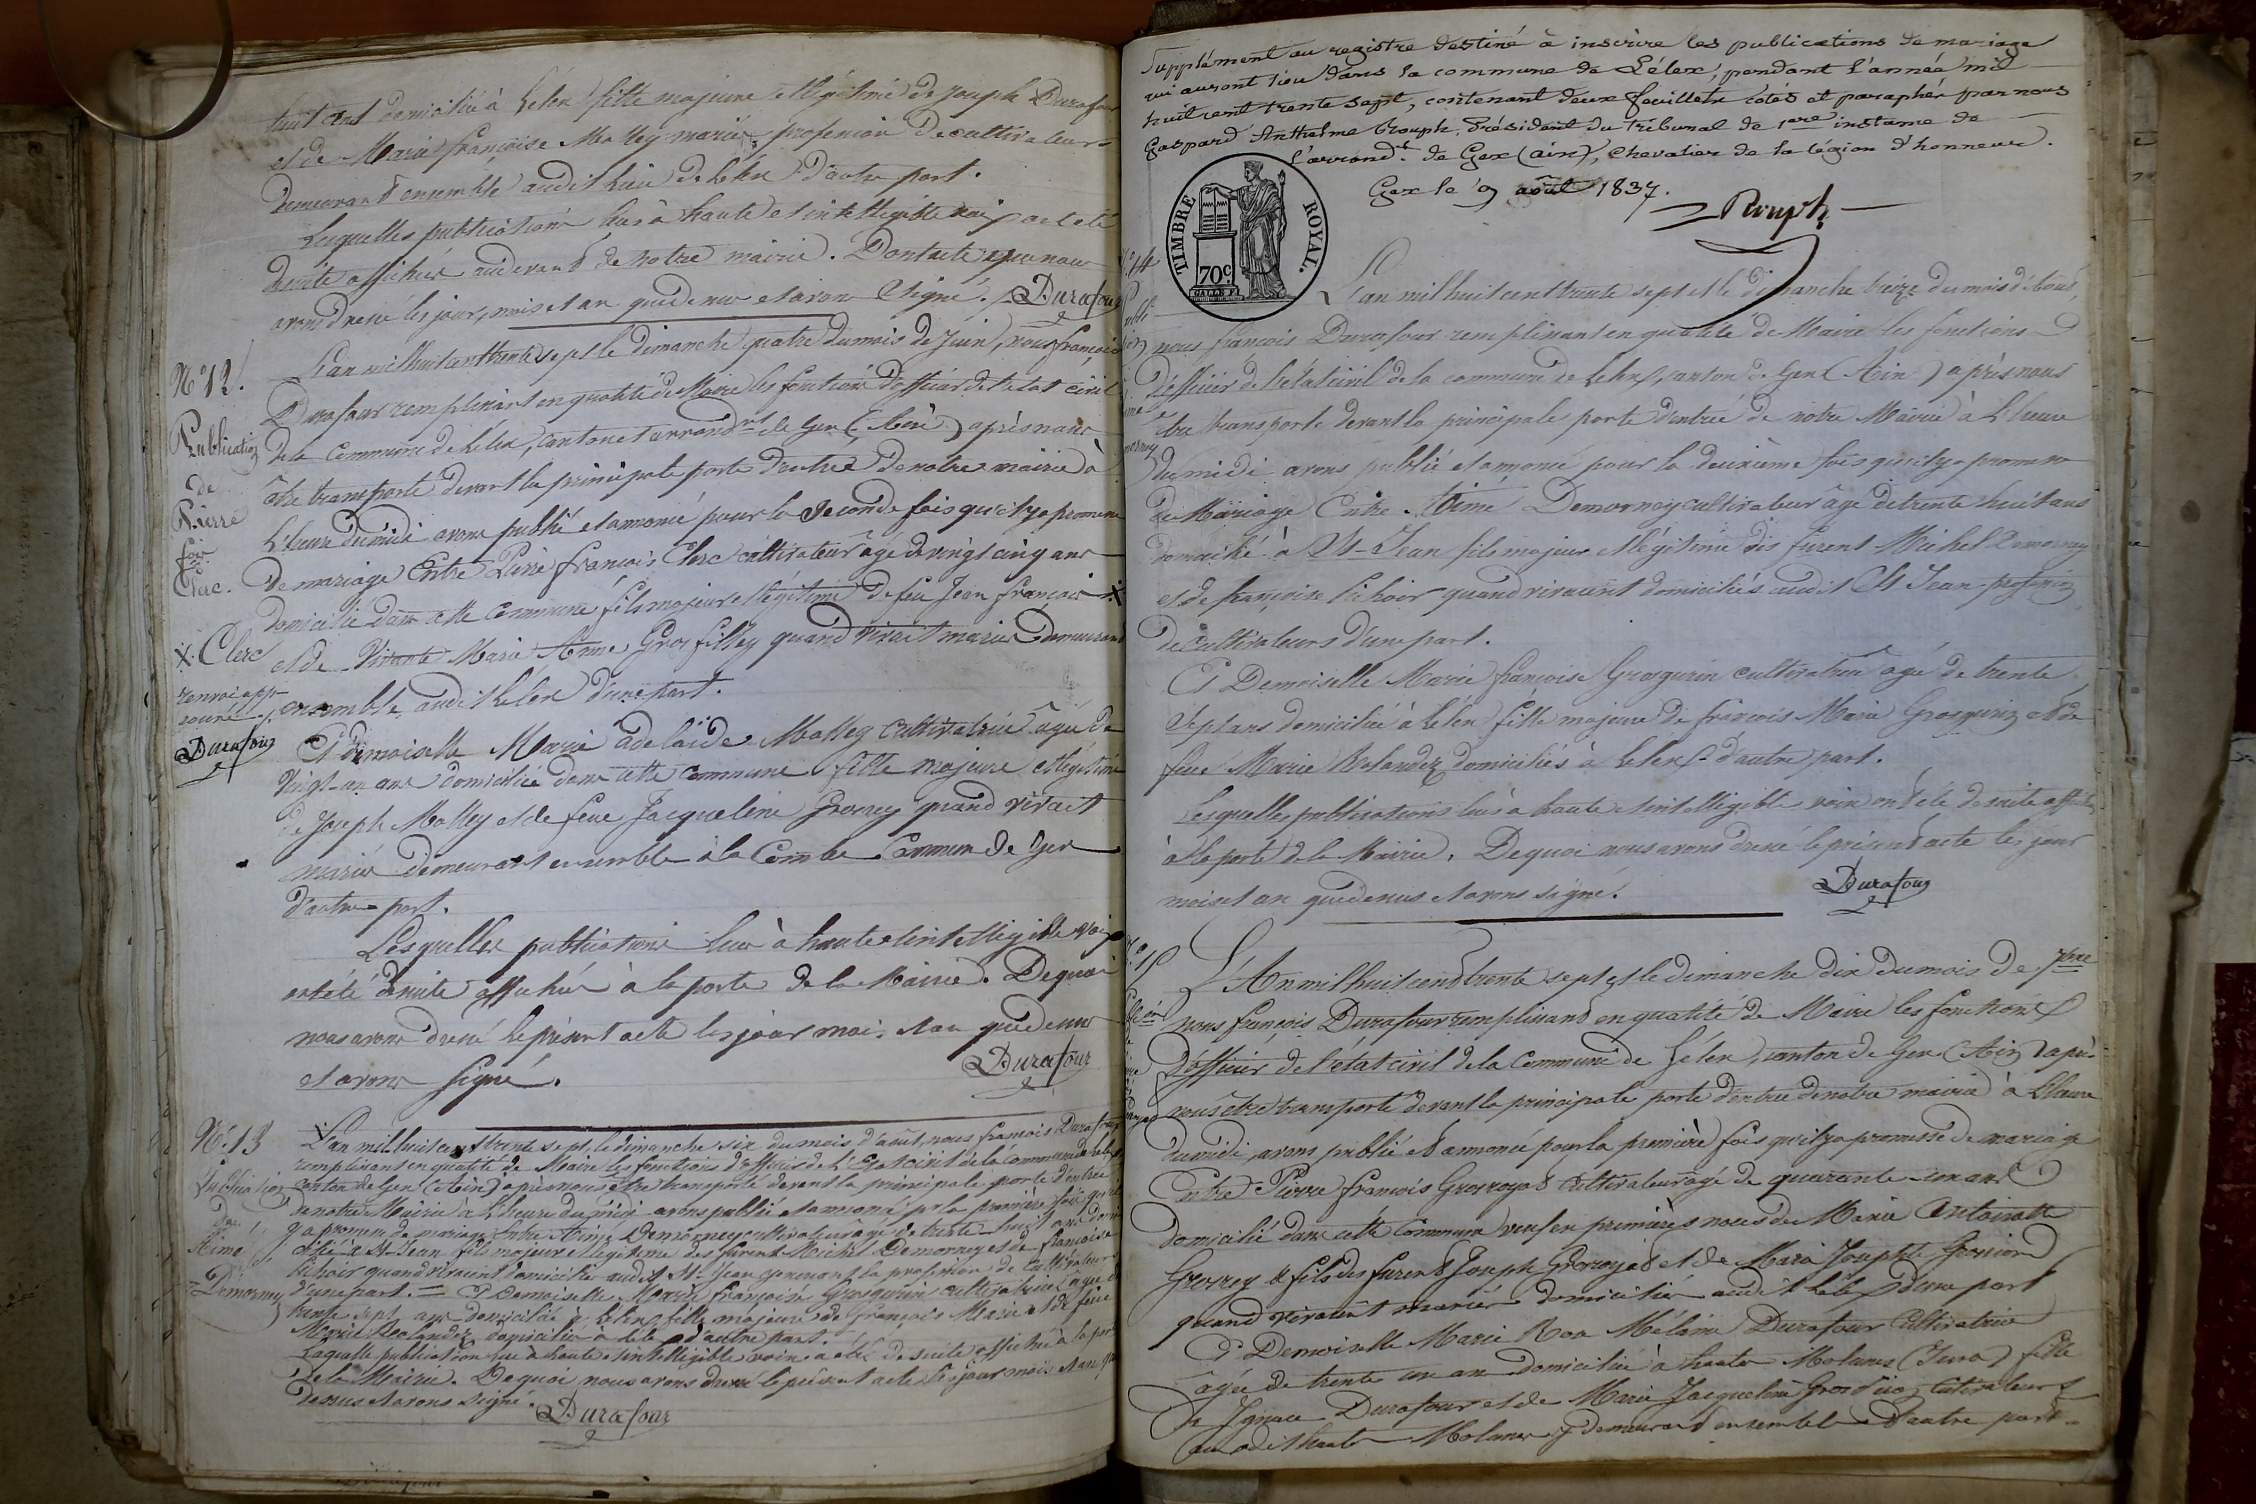 huit ans domiciliée à Lélex fille majeure et légitime de Joseph Durafour
et de Marie françoise Molley mariés, profession de cultivateurs
demeurant ensemble audit lieu de Lélex d'autre part.
Lesquelles publications lues à haute et intelligible voix, ont été
de suite affichées au devant de notre mairie. Dont acte que nous
avons dressé les jour, mois et an que dessus et avons signé. Durafour
N° 12.
Publication
de
Pierre
fois
Clerc.
X. Clerc
renvoi app-
rouvé.
Durafour
L'an mil huit cent trente sept le dimanche quatre du mois de Juin, nous françois
Durafour remplissant en qualité de Maire les fonctions d'officier de l'état civil
de la commune de Lélex, canton et arrondmt de Gex (Ain) après nous
être transporté devant la principale porte d'entrée de notre mairie à
l'heure de midi avons publié et annoncé pour la seconde fois qu'il y a promesse
de mariage Entre Pierre françois Clerc cultivateur âgé de vingt cinq ans
domicilié dans cette commune fils majeur et légitime de feu Jean françois X
et de Vivante Marie Anne Gros filley quand vivait mariés demeurant
ensemble audit Lélex d'une part.
Et demoiselle Marie adelaïde Molley cultivatrice âgée de
vingt-un ans domiciliée dans cette commune fille majeure et légitime
de Joseph Molley et de feue Jacqueline Grosrey quand vivait
mariés demeurant ensemble à la Combe Commune de Gex
d'autre part.
Lesquelles publications lues à haute et intelligible voix
ont été de suite affichées à la porte de la Mairie. De quoi
nous avons dressé le présent acte les jour mois et an que dessus
et avons signé. Durafour
N° 13
Publication
de
Aimé
Démornay
L'an mil huit cent trente sept, le dimanche six du mois d'août, nous francois Durafour
remplissant en qualité de Maire les fonctions d'officier de l'Etat civil de la commune de Lélex
canton de Gex (Ain) après nous être transporté devant la principale porte d'entrée
de notre Mairie à l'heure de midi avons publié et annoncé pr la première fois qu'il
y a promesse de mariage entre Aimé Démornay cultivateur âgé de trente huit ans domi
cilié à St Jean fils majeur et légitime des furent Michel Démornay et de françoise
Vichoir quand vivaient domiciliés audit St Jean exerçant la profession de cultivateurs
d'une part. = Et Demoiselle Marie françoise Grosgurin cultivatrice âgée de
trente sept ans domiciliée à Lélex fille majeure de François Marie et de feue
Marie Rolandez domiciliés à Lélex d'autre part.
Laquelle publication lue à haute et intelligible voix a été de suite affichée à la porte
de la Mairie. De quoi nous avons dressé le présent acte les jour mois et an que
dessus et avons signé. Durafour
Supplément au registre destiné à inscrire les publications de mariage
qui auront lieu dans la commune de Lélex, pendant l'année mil
huit cent trente sept, contenant deux feuillets cotés et paraphés par nous
Gaspard Anthelme Rouph, Président du tribunal de 1ere instance de
l'arrondt de Gex (ain), chevalier de la légion d'honneur.
Gex le 9 août 1837.
Rouph
TIMBRE ROYAL.
70c
N° 14
L'an mil huit cent trente sept et le dimanche treize du mois d'Aout,
nous françois Durafour remplissant en qualité de Maire les fonctions
d'officier de l'état civil de la commune de Lélex, canton de Gex (Ain) après nous
être transporté devant la principale porte d'entrée de notre Mairie à l'heure
du midi avons publié et annoncé pour la deuxième fois qu'il y a promesse
de Mariage Entre Aimé Demornay cultivateur âgé de trente huit ans
domicilié à St-Jean fils majeur et légitime des furent Michel Demornay
et de françoise Vichoir quand vivaient domiciliés audit St Jean profession
de cultivateurs d'une part.
Et Demoiselle Marie françoise Grosgurin cultivatrice âgée de trente
sept ans domiciliée à Lélex fille majeure de françois Marie Grosgurin et de
feue Marie Rolandez domiciliés à Lélex d'autre part.
Lesquelles publications lues à haute et intelligible voix ont été de suite affichées
à la porte de la Mairie. De quoi nous avons dressé le présent acte les jour
mois et an que dessus et avons signé. Durafour
N° 15
L'An mil huit cent trente sept et le dimanche dix du mois de 7bre
nous françois Durafour remplissant en qualité de Maire les fonctions
d'officier de l'état civil de la Commune de Lélex, canton de Gex (Ain) après
nous être transporté devant la principale porte d'entrée de notre mairie à l'heure
du midi, avons publié et annoncé pour la première fois qu'il y a promesse de mariage
Entre Pierre françois Grosroyat cultivateur âgé de quarante-un ans
domicilié dans cette Commune veuf en premières noces de Marie Antoinette
Grosrey & fils des furent Joseph Grosroyat et de Marie Josephte Grosrion
quand vivaient mariés domiciliés audit Lélex d'une part
Et Demoiselle Marie Roza Mélanie Durafour cultivatrice
âgée de trente un an domiciliée à hautes Molunes (Jura) fille
de Ignace Durafour et de Marie Jacqueline cultivateurs
au dit hautes Molunes y demeurant ensemble d'autre part